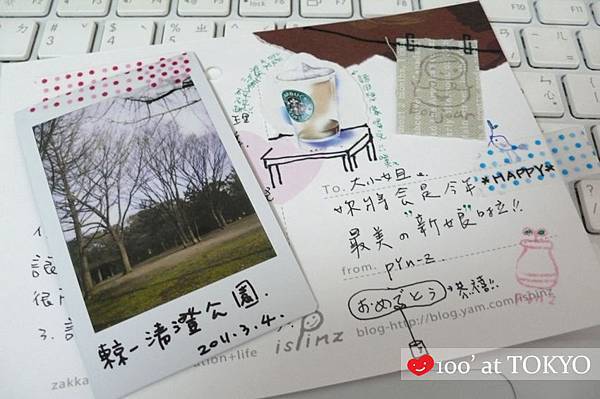 東京-清澄公園.
2011.3.4.
To. 大小姐.
妳將會是今年
最美の"新娘"啦!!
*HAPPY*
from. pYn-z.
おめでとう 恭禧!!
isPinz
blog-http://blog.yam.com/ispinz
Bonjour
3.
zakka
ation+life
100' at TOKYO